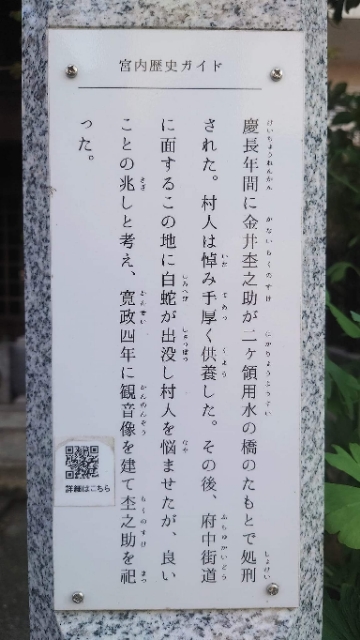 宮内歴史ガイド
慶長年間に金井杢之助が二ヶ領用水の橋のたもとで処刑
された。村人は悼み手厚く供養した。その後、府中街道
に面するこの地に白蛇が出没し村人を悩ませたが、良い
ことの兆しと考え、寛政四年に観音像を建て杢之助を祀
った。
詳細はこちら